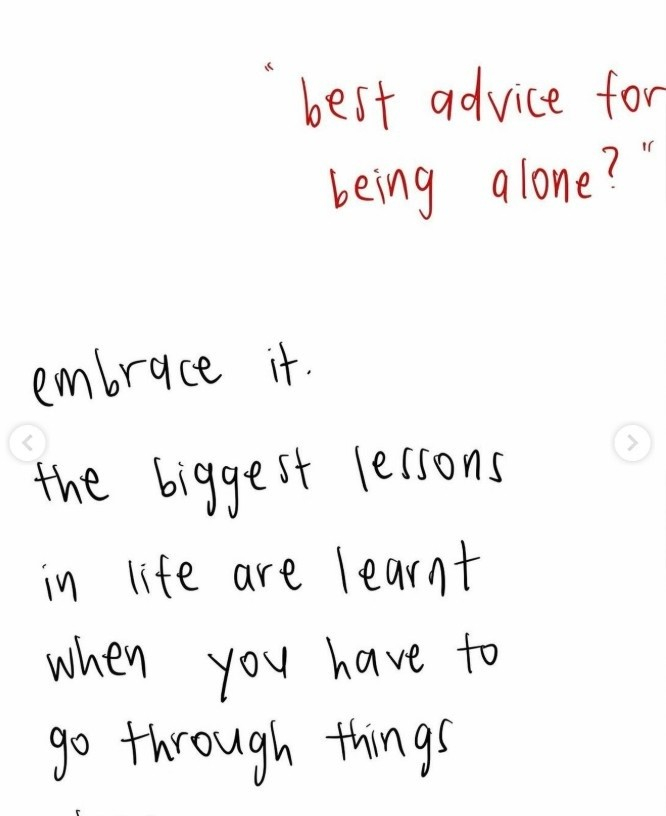 "best advice for
being alone?"
embrace it.
the biggest lessons
in life are learnt
when you have to
go through things